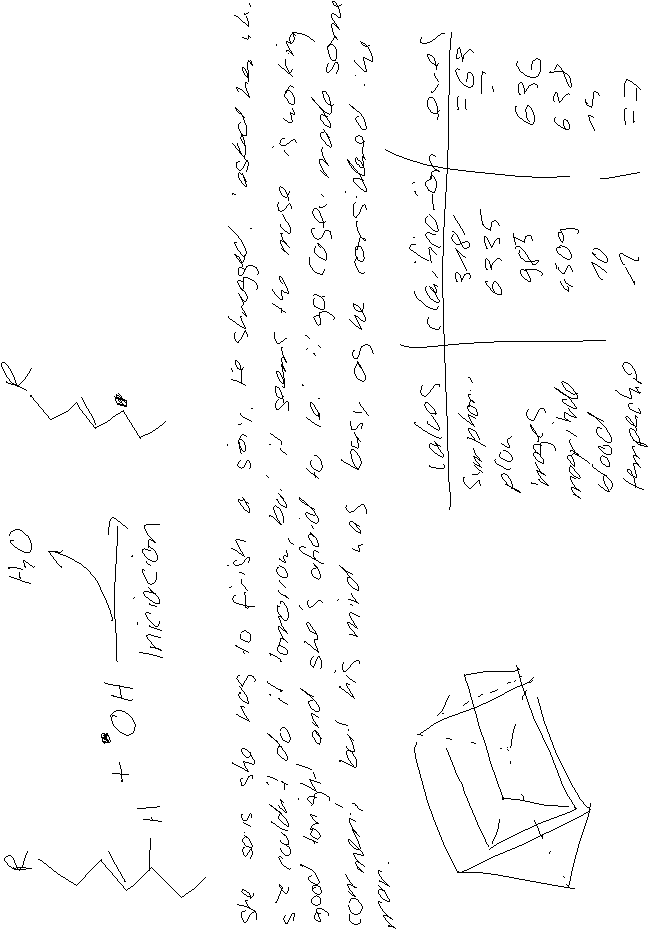 R
H
+ •OH
H2O
Iniciacion
R
she says she has to finish a story. He shrugged. I asked her why
she couldn't do it tomorrow, but it seems the muse is working
good tonight and she's afraid to let it go. Casey made some
comment, but his mind was busy as he considered the
man.
valves clarification ones
symphony 3181 =63
plan 6335
images 983 636
magnitude 4509 638
blood 10
temperature =7